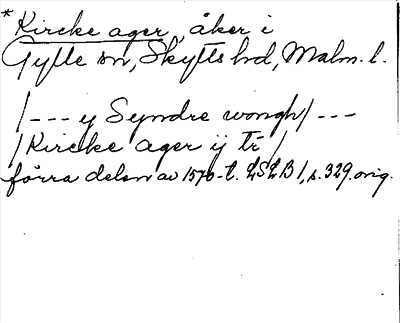 *Kircke ager, åker i
Gylle sn, Skytts hd, Malm. l.
/--- y Syndre wongh/ ---
/Kircke ager ij tr/
förra delen av 1570-t. LSLB 1, s. 329. orig.